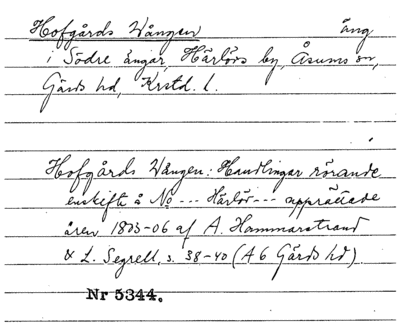 Hofgårds Vången äng
i Södre ängar, Härlövs by, Åsums sn,
Gärds hd, Krstd. l.
Hofgårds Vången: Handlingar rörande
enskifte å No --- Härlöv --- upprättade
åren 1803-06 af A. Hammarstrand
& L. Segrell, s. 38-40 (A 6 Gärds hd)
Nr 5344.